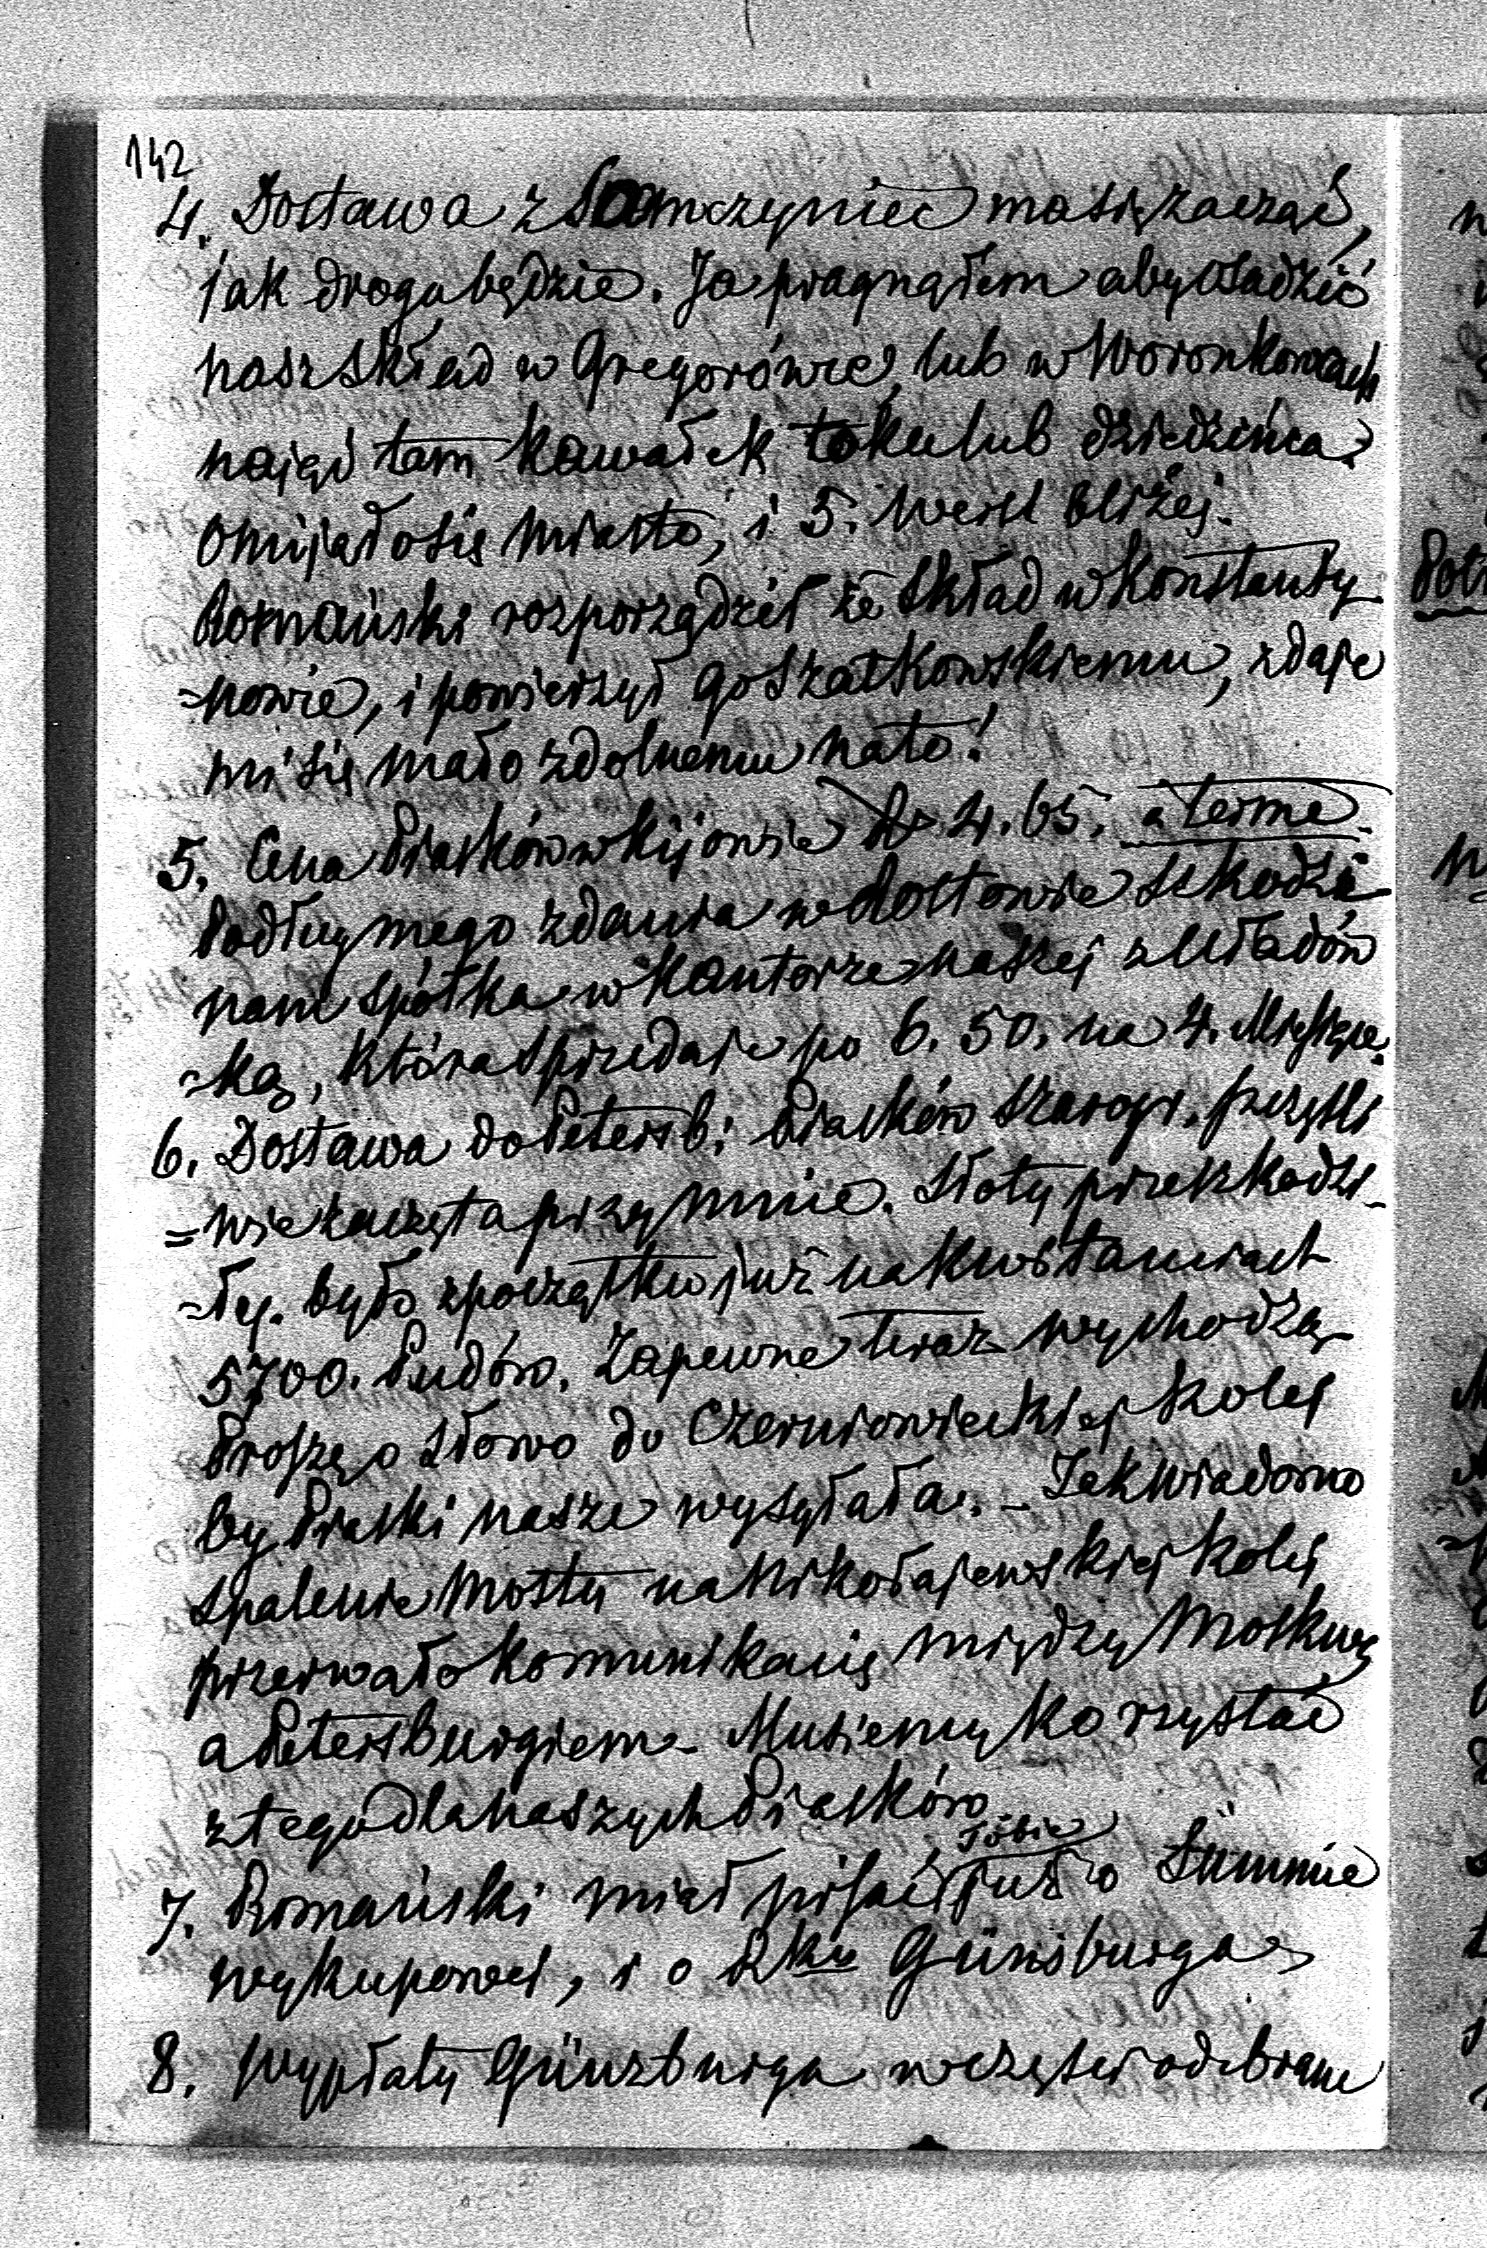 142
4. Dostawa z Somczyniec ma się zacząć,
jak droga będzie. Ja pragnąłem aby osadzić
nasz skład w Gregorówce, lub w Woronkowcach
nająć tam kawałek toku lub dziedzińca.
Omijało się miasto, i 5. werst bliżej.
Romański rozporządził że skład w Konstanty
=nowie, i powierzył go Szatkowskiemu, zdaje
mi się mało zdolnemu na to!
5. Cena Piasków w Kijowie 4. 65. a terme.
Podług mego zdania w Rostowie szkodzi
nam spółka w Kantorze naszej z Układów
=ką, która sprzedaje po 6. 50. na 4. Miesiące.
6. Dostawa do Petersb: Piasków Szarogr. przeszli
=wie zaczęta przy mnie. Słoty przeszkodzi_
=ły. było z początku już na kwitancjach
5700. Pudów. Zapewne teraz wychodzą
Proszę o słowo do Czerniowieckiej Kolej
by Piaski nasze wysyłała. – Jak wiadomo
spalenie Mostu na Nikołajewskiej kolej
przerwało komunikacię między Moskwą
a Petersburgiem – Musiemy korzystać
z tego dla naszych Piasków.
7. Romański miał pisać Tobie już o Summie
wykupowej, i o Rku Günsburga
8. Wypłaty Günzburga w części odebrane